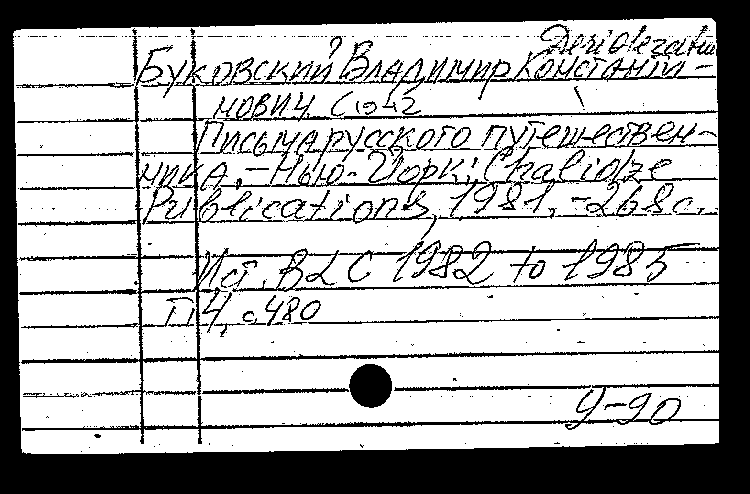 Буковский Владимир Константи-
нович. С 1942
Письма русского путешествен-
ника. - Нью-Йорк: Chalidze
Publications, 1981. - 268 с.
Ист. BLC 1982 to 1985
т. 4, с. 480
9-90